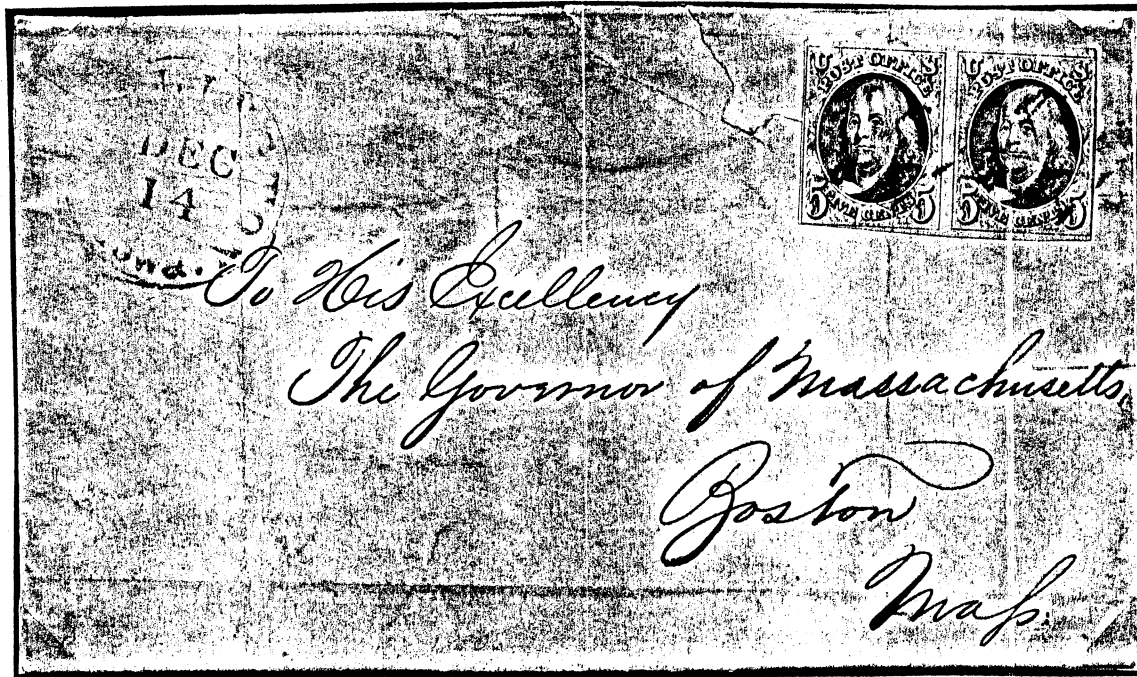 DEC
14
U S
POST OFFICE
5 FIVE CENTS 5
U S
POST OFFICE
5 FIVE CENTS 5
To His Excellency
The Governor of Massachusetts,
Boston
Mass.